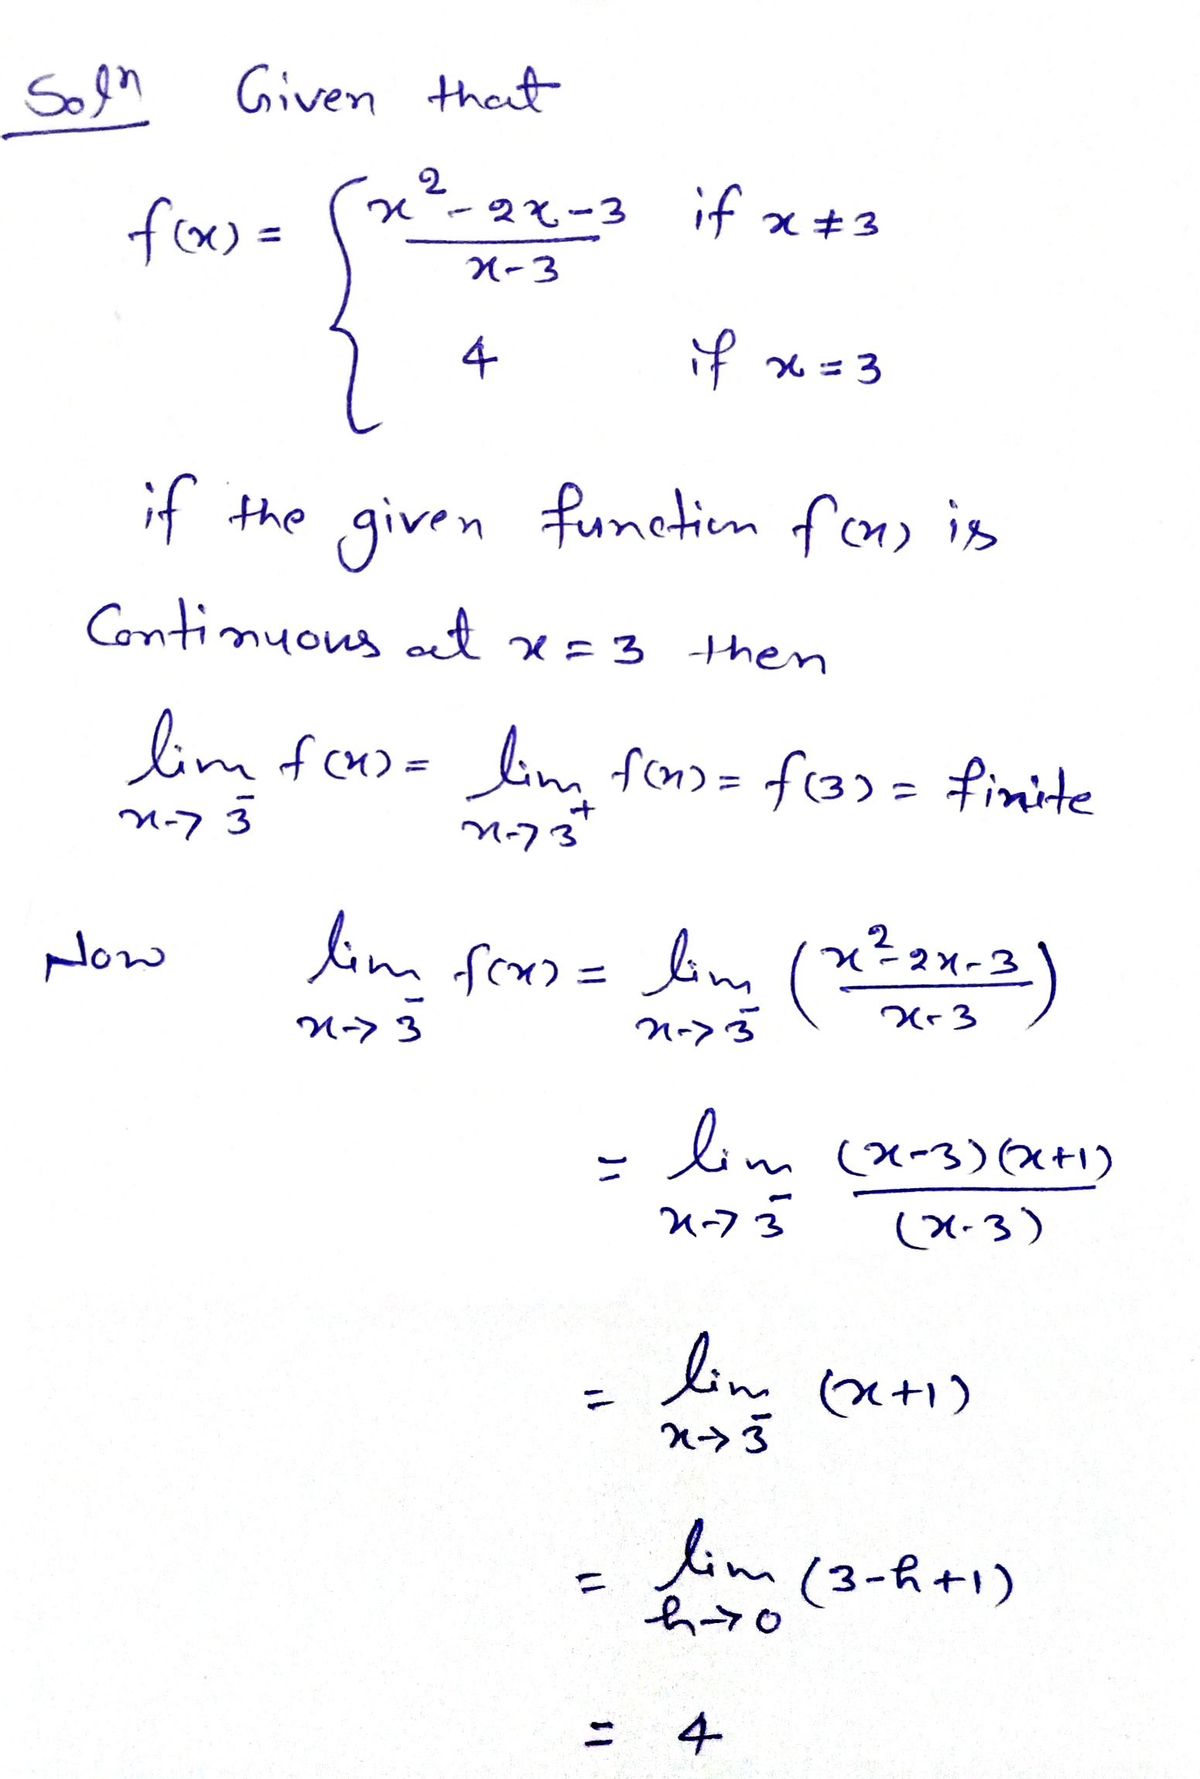 Solⁿ Given that
f(x) = { (x² - 2x - 3)/(x - 3) if x ≠ 3
4 if x = 3
if the given function f(x) is
Continuous at x = 3 then
lim x→3⁻ f(x) = lim x→3⁺ f(x) = f(3) = finite
Now lim x→3⁻ f(x) = lim x→3⁻ ((x² - 2x - 3)/(x - 3))
= lim x→3⁻ (x-3)(x+1)/(x-3)
= lim x→3⁻ (x+1)
= lim h→0 (3-h+1)
= 4